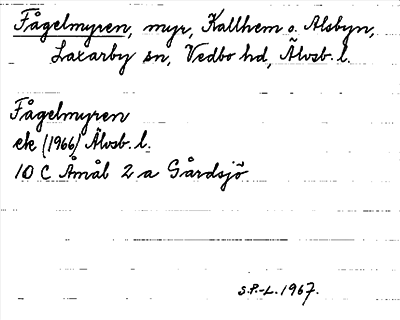 Fågelmyren, myr, Kallhem o. Alsbyn,
Laxarby sn, Vedbo hd, Älvsb. l.
Fågelmyren
ek (1966) Älvsb. l.
10 C Åmål 2 a Gårdsjö
S.P.-L. 1967.